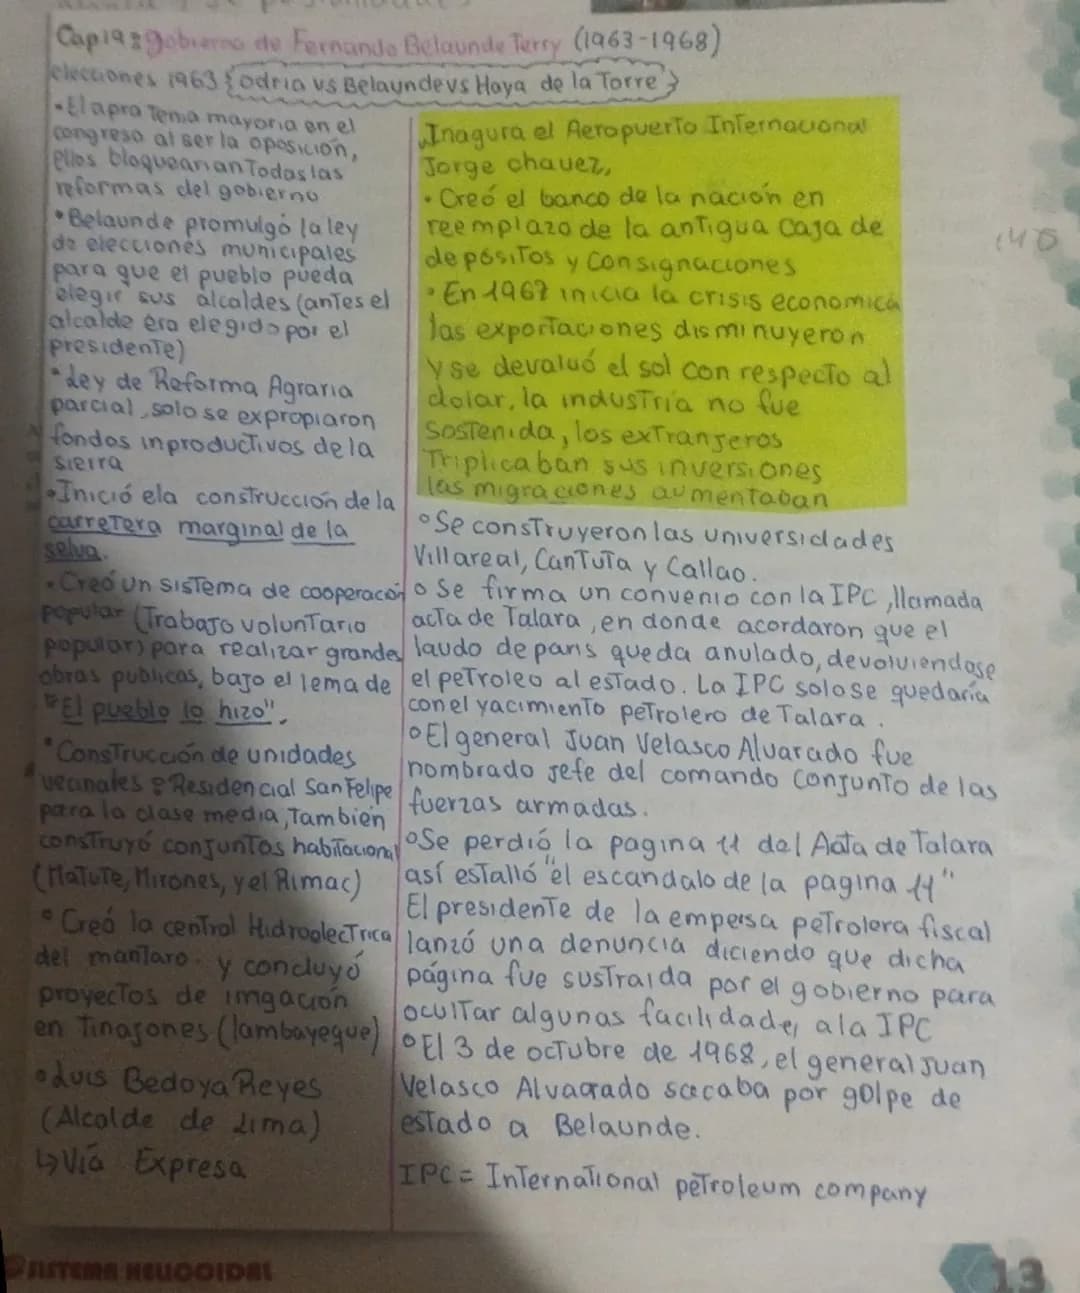 Cap19: gobierno de Fernando Belaunde Terry (1963-1968)
elecciones 1963 {odria vs Belaunde vs Haya de la Torre}
•El apra Tenia mayoria en el
congreso al ser la oposición,
ellos bloquearian Todas las
reformas del gobierno
•Belaunde promulgó la ley
de elecciones municipales
para que el pueblo pueda
elegir sus alcaldes (antes el
alcalde era elegido por el
presidente)
•Ley de Reforma Agraria
parcial, solo se expropiaron
fondos inproductivos de la
sierra
•Inició ela construcción de la
carretera marginal de la
selva.
•Creó un sistema de cooperación
popular (Trabajo voluntario
popular) para realizar grandes
obras publicas, bajo el lema de
"El pueblo lo hizo".
•Construcción de unidades
vecinales: Residencial San Felipe
para la clase media, Tambien
construyó conjuntos habitacional
(Matute, Mirones, y el Rimac)
•Creó la central Hidroelectrica
del mantaro. y concluyó
proyectos de irrigación
en Tinajones (lambayeque)
•Luis Bedoya Reyes
(Alcalde de Lima)
↳Vía Expresa
Inagura el Aeropuerto Internacional
Jorge chavez,
•Creó el banco de la nación en
reemplazo de la antigua caja de
depósitos y consignaciones
•En 1967 inicia la crisis economica
las exportaciones disminuyeron
y se devaluó el sol con respecto al
dolar, la industria no fue
sostenida, los extranjeros
Triplicaban sus inversiones
las migraciones aumentaban
°Se construyeron las universidades
Villareal, Cantuta y Callao.
°Se firma un convenio con la IPC, llamada
acta de Talara, en donde acordaron que el
laudo de paris queda anulado, devolviendose
el petroleo al estado. La IPC solo se quedaría
con el yacimiento petrolero de Talara.
°El general Juan Velasco Alvarado fue
nombrado jefe del comando conjunto de las
fuerzas armadas.
°Se perdió la pagina 11 del Acta de Talara
así estalló "el escandalo de la pagina 11"
El presidente de la empersa petrolera fiscal
lanzó una denuncia diciendo que dicha
página fue sustraida por el gobierno para
ocultar algunas facilidades a la IPC
°El 3 de octubre de 1968, el general Juan
Velasco Alvaarado sacaba por golpe de
estado a Belaunde.
IPC = International petroleum company
SISTEMA HELICOIDAL
13